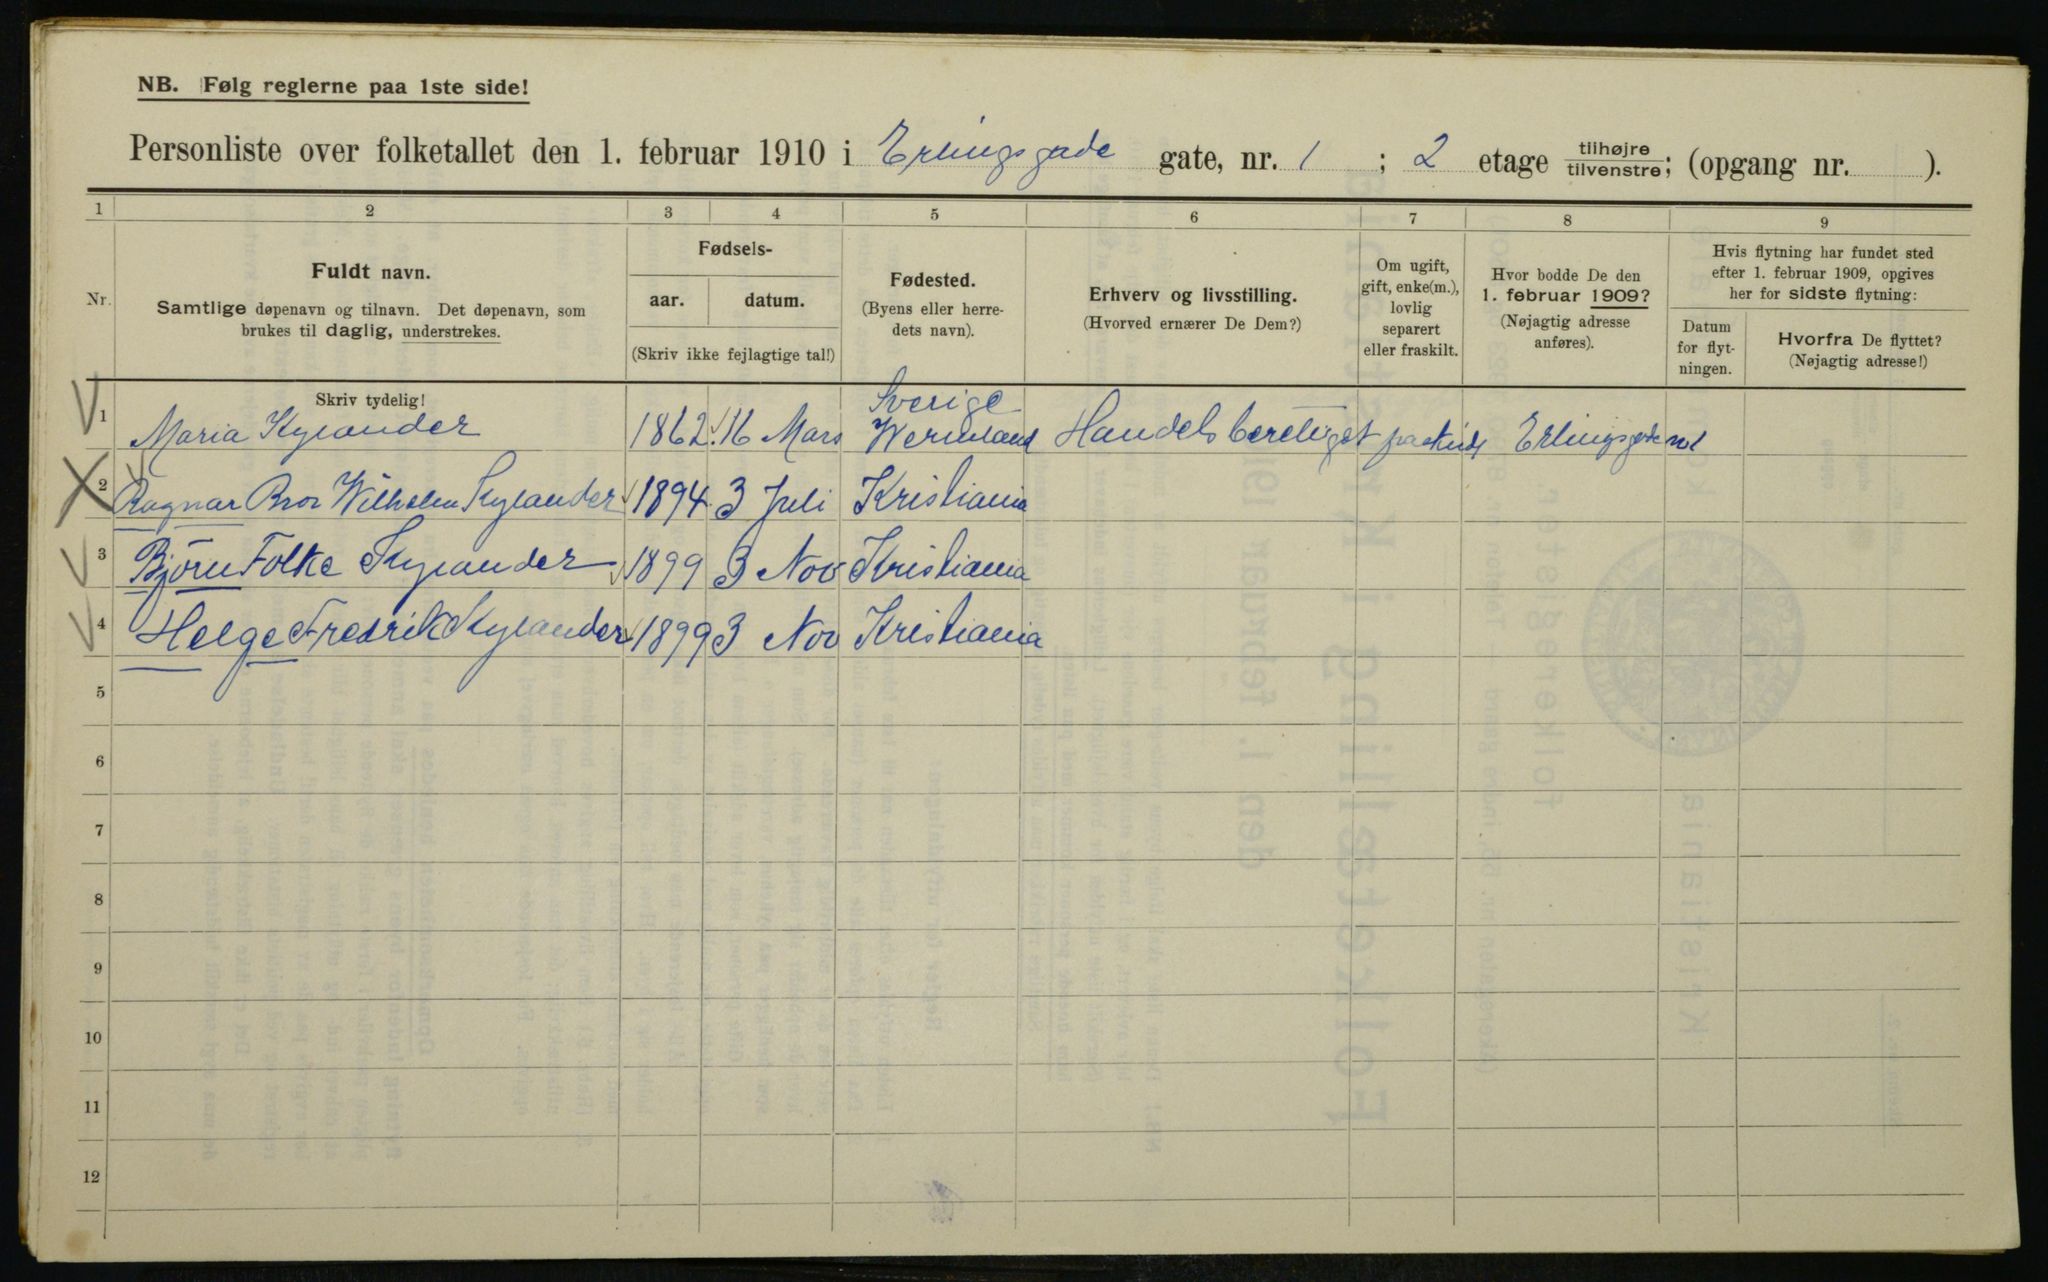 NB. Følg reglerne paa 1ste side!
Personliste over folketallet den 1. februar 1910 i Erlingsgade gate, nr. 1 ; 2 etage tilhøjre / tilvenstre; (opgang nr. ).
1 2 3 4 5 6 7 8 9
Nr.
Fuldt navn.
Samtlige døpenavn og tilnavn. Det døpenavn, som
brukes til daglig, understrekes.
Fødsels-
aar. datum.
(Skriv ikke fejlagtige tal!)
Fødested.
(Byens eller herre-
dets navn).
Erhverv og livsstilling.
(Hvorved ernærer De Dem?)
Om ugift,
gift, enke(m.),
lovlig
separert
eller fraskilt.
Hvor bodde De den
1. februar 1909?
(Nøjagtig adresse
anføres).
Hvis flytning har fundet sted
efter 1. februar 1909, opgives
her for sidste flytning:
Datum
for flyt-
ningen.
Hvorfra De flyttet?
(Nøjagtig adresse!)
Skriv tydelig!
Sverige
1 Maria Kylander 1862 16 Mars Wermland Handelsberetiget Erlingsgade no 1
2 Ragnar Bror Wilhelm Kylander 1894 3 Juli Kristiania
3 Bjørn Folke Kylander 1899 3 Nov Kristiania
4 Helge Fredrik Kylander 1899 3 Nov Kristiania
5
6
7
8
9
10
11
12